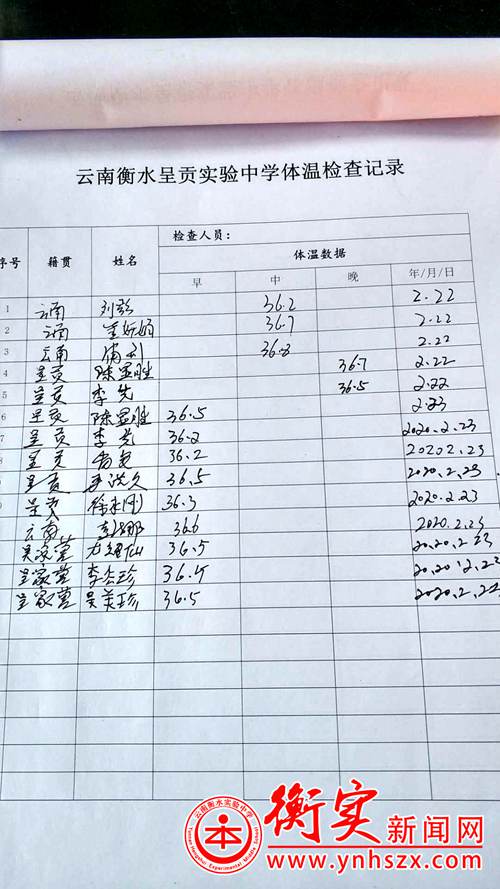 云南衡水呈贡实验中学体温检查记录
检查人员：
序号 籍贯 姓名 体温数据
早 中 晚 年/月/日
1 云南 36.2 2.22
2 云南 36.7 2.22
3 云南 36.8 2.22
4 呈贡 陈显胜 36.7 2.22
5 呈贡 李先 36.5 2.22
6 呈贡 陈显胜 36.5 2.23
7 呈贡 李先 36.2 2020.2.23
8 呈贡 36.2 2020 2.23
9 呈贡 36.5 2020.2.23
呈贡 徐永刚 36.3 2020.2.23
云南 36.6 2020.2.23
吴家营 仙 36.5 2020.2 23
吴家营 李 珍 36.4 2020.2.22
吴家营 吴美珍 36.5 2020.2.22
云南衡水实验中学
Yunnan Hengshui Experimental Middle School
本
衡实新闻网
www.ynhszx.com